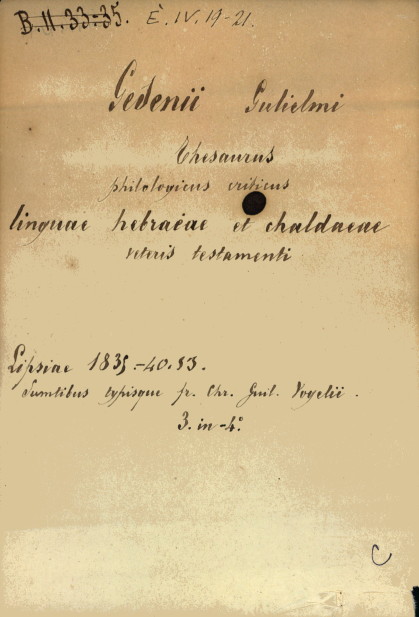 B. II. 33-35. É. IV. 19-21.
Gesenii Gulielmi
Thesaurus
philologicus criticus
linguae hebraeae et chaldaeae
veteris testamenti
Lipsiae 1835.-40.53.
Sumtibus typisque fr. Chr. Guil. Vogelii.
3. in-4º.
C